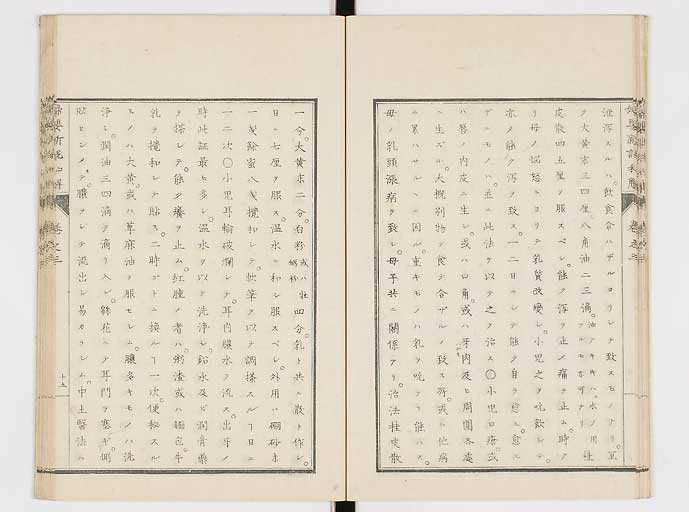 泄瀉スルハ飲食合ハザルヨリシテ致スモノナリ
ヲ大黄末三四厘八角油二三滴
皮散四五厘ヲ服スベシ能ク瀉ヲ止メ痛ヲ止ム時アリ
リ母ノ惱怒ニヨリテ乳質改變シ小児之ヲ吮飲シテ
亦タ能ク瀉ヲ致ス一二日ニシテ能ク自ラ愈ユ愈エ
ザルモノハ並ニ此法ヲ以テ之ヲ治ス〇小児口瘡或
ハ唇ノ内皮ニ生シ或ハ口角或ハ牙肉及ヒ周圍各處
ニ生ズル大概別物ヲ食テ合ザルノ致ス所或ハ他病
ニ累ハサルヽニ因ル重キモノハ乳ヲ吮テ能ハズ
母ノ乳頭瘰病ヲ致シ母子共ニ關係アリ治法桂皮散
一分大黄末二分白粉或ハ牡蠣粉四分乳ト共ニ散ト作シ
日ニ七厘ヲ服ス温水ニ和シ服スベシ外用ハ硼砂末
一戔餘蜜八戔攪和シテ軟筆ヲ以テ調搽スルヿ日ニ
一二次〇小児耳輪破爛シテ耳内膿水ヲ流ス出牙ノ
時此証最モ多シ温水ヲ以テ洗浄シ鉛水及ビ潤膏藥
ヲ搽シテ能ク癢ヲ止ム紅腫ノ者ハ粥渣或ハ麺包牛
乳ヲ攪和シテ貼ス二時ゴトニ換ルヿ一次便秘スル
モノハ大黄或ハ萆麻油ヲ服セシム膿多キモノハ洗
浄シ潤油三四滴ヲ滴リ入レ緜花ニテ耳門ヲ塞ギ側
臥セシメテ膿ヲシテ流出シ易カラシム中土醫法ハ
十五